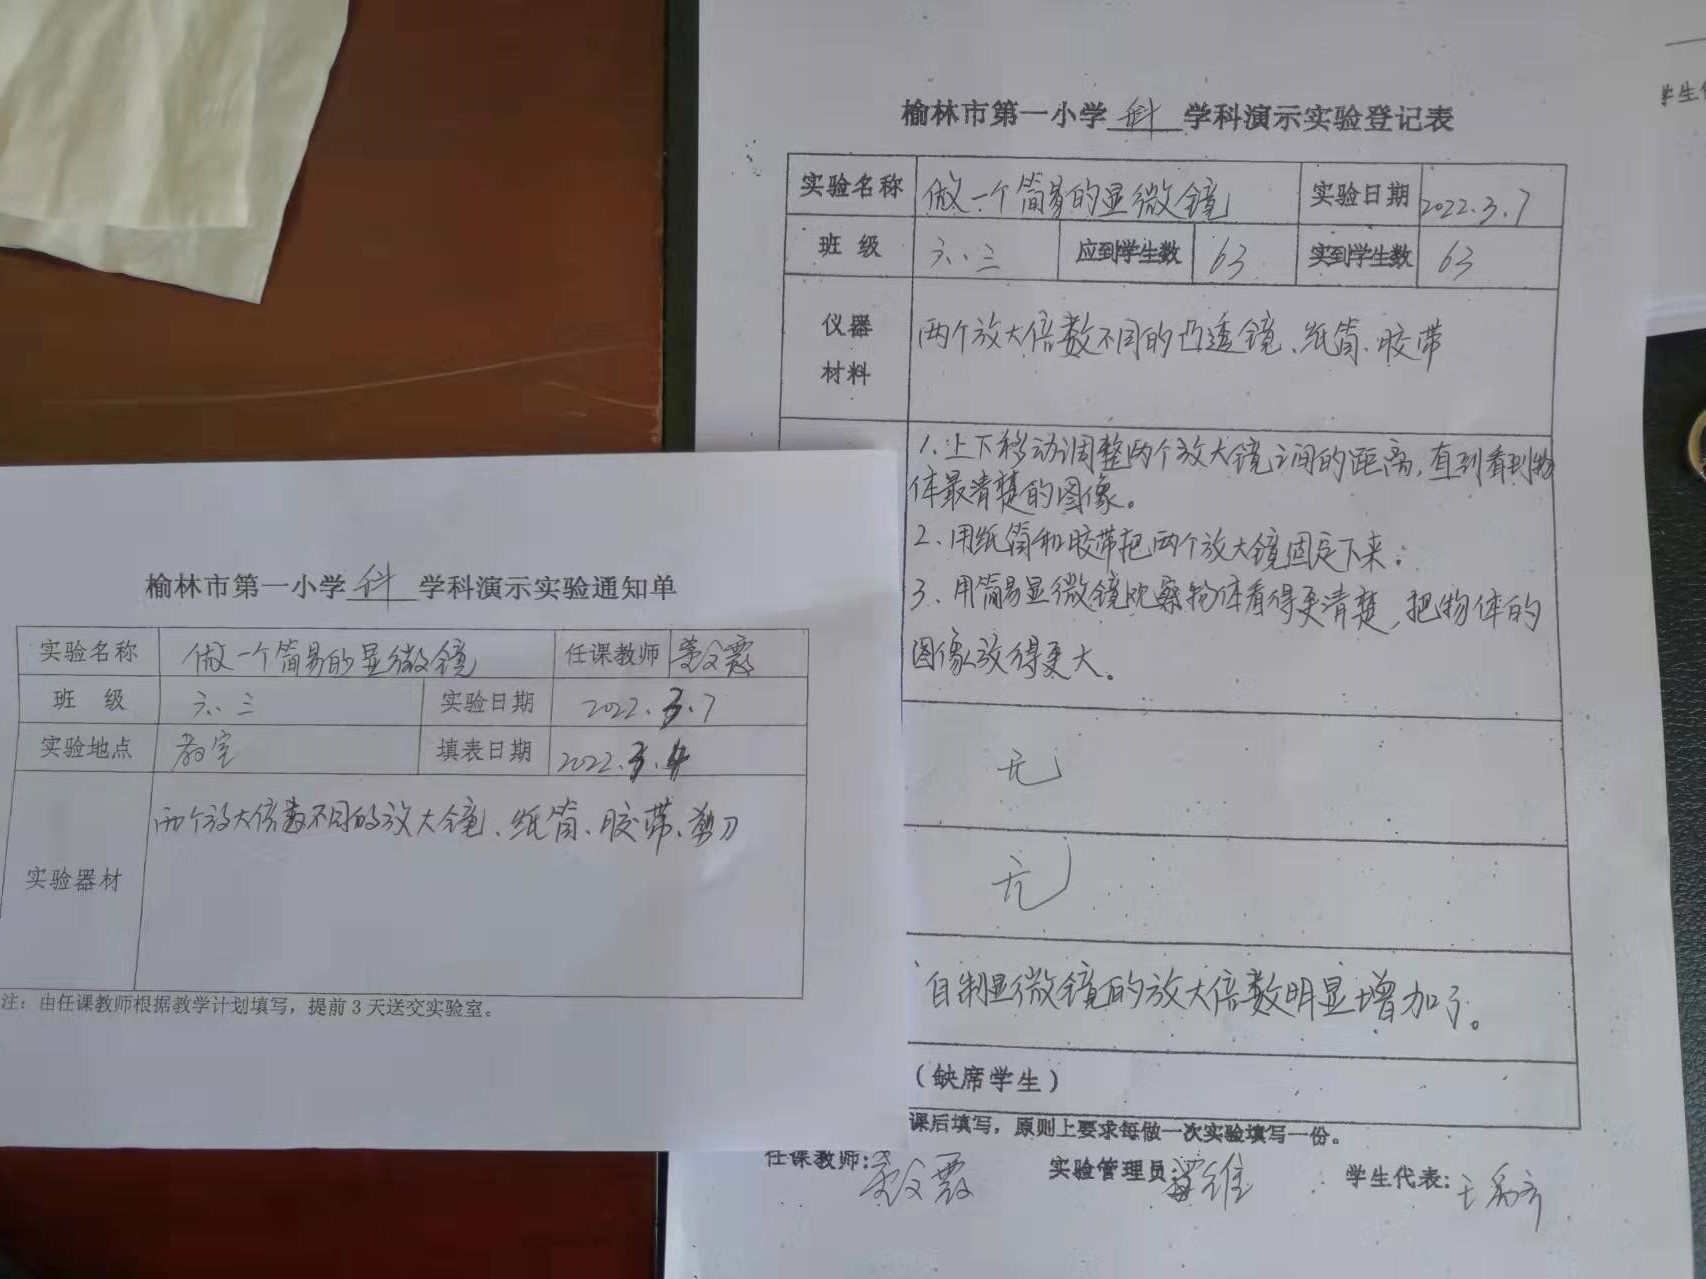 榆林市第一小学 科 学科演示实验登记表
实验名称 做一个简易的显微镜 实验日期 2022.3.7
班 级 六.三 应到学生数 63 实到学生数 63
仪器
材料
两个放大倍数不同的凸透镜、纸筒、胶带
1.上下移动调整两个放大镜之间的距离,直到看到物
体最清楚的图像。
2、用纸筒和胶带把两个放大镜固定下来;
3、用简易显微镜观察物体看得更清楚,把物体的
图像放得更大。
无
无
自制显微镜的放大倍数明显增加了。
(缺席学生)
课后填写,原则上要求每做一次实验填写一份。
任课教师: 实验管理员: 学生代表:
学生
榆林市第一小学 科 学科演示实验通知单
实验名称 做一个简易的显微镜 任课教师
班 级 六.三 实验日期 2022.3.7
实验地点 教室 填表日期 2022.3.4
实验器材 两个放大倍数不同的放大镜、纸筒、胶带、剪刀
注:由任课教师根据教学计划填写,提前3天送交实验室。